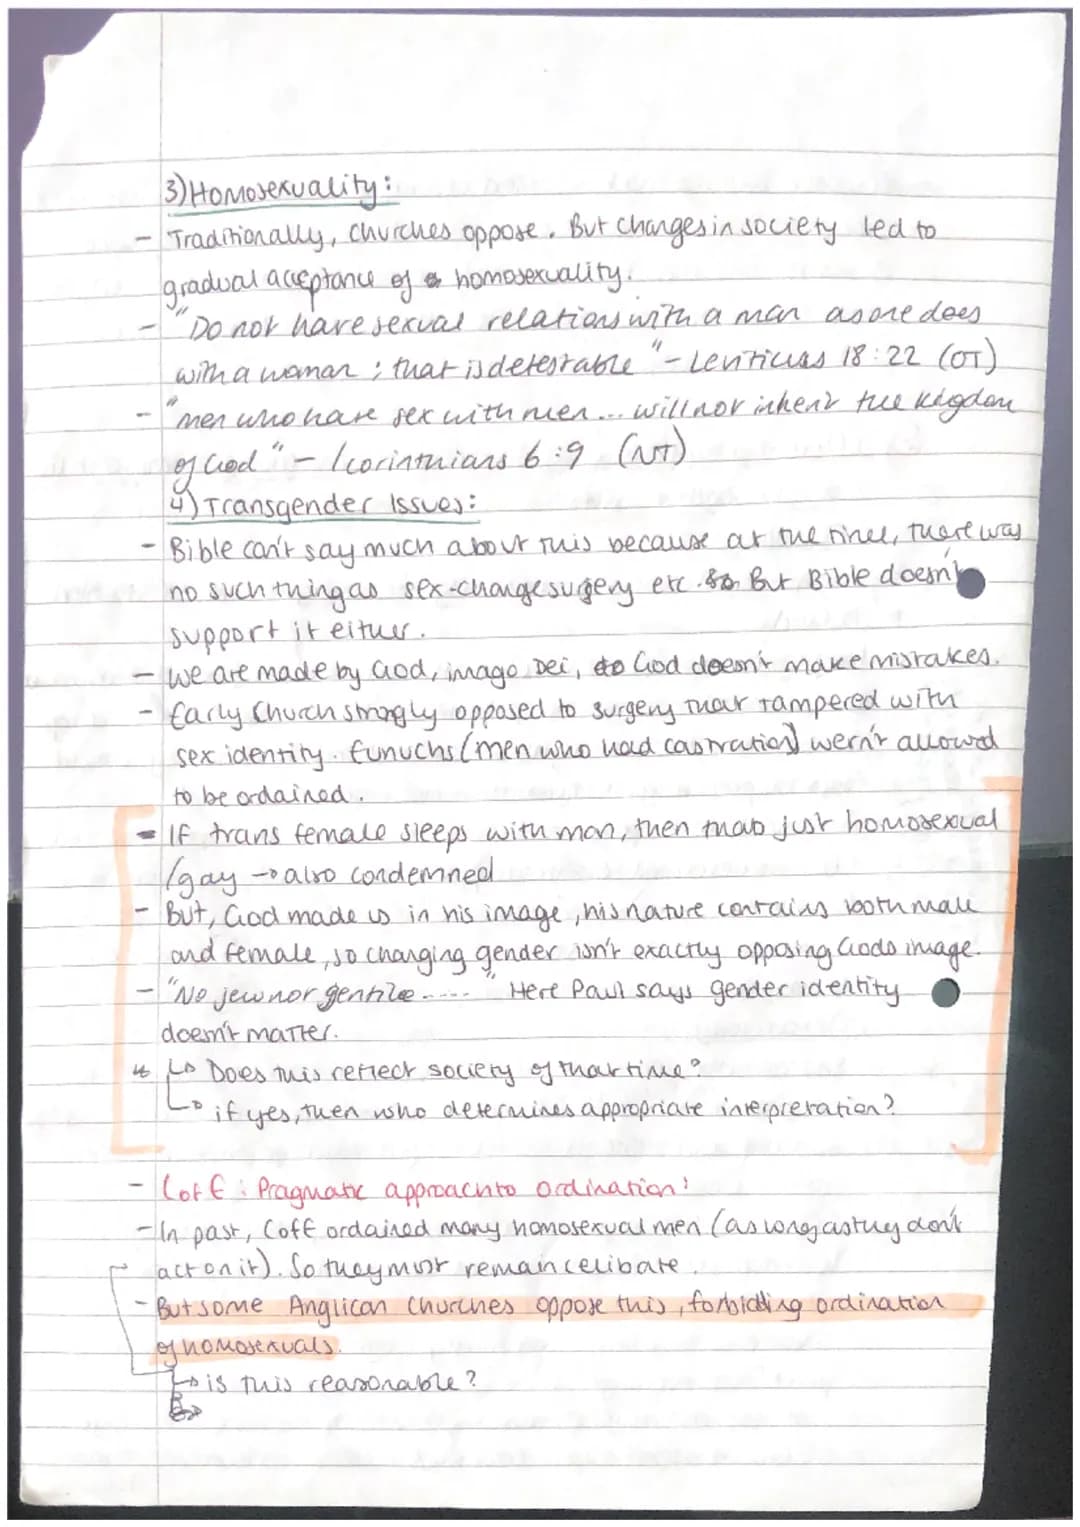 3) Homosexuality:
- Traditionally, churches oppose. But changes in society led to
gradual acceptance of homosexuality.
- "Do not have sexual relations with a man as one does
with a woman; that is detestable" - Leviticus 18:22 (OT)
- "men who have sex with men... will not inherit the kigdom
of God" - 1 corinthians 6:9 (NT)
4) Transgender Issues:
- Bible can't say much about this because at the time, there was
no such thing as sex-change surgery etc. But Bible doesn't
support it either.
- We are made by God, imago Dei, God doesn't make mistakes.
- Early Church strongly opposed to surgery that tampered with
sex identity. Eunuchs (men who had castration) wern't allowed
to be ordained.
- If trans female sleeps with man, then thats just homosexual
/gay → also condemned
- But, God made us in his image, his nature contains both male
and female, so changing gender isn't exactly opposing Gods image.
- "No jew nor gentile......" Here Paul says gender identity
doesn't matter.
↳ Does this reflect society of that time?
↳ if yes, then who determines appropriate interpretation?
- C of E: Pragmatic approach to ordination:
- In past, CofE ordained many homosexual men (as long as they don't
act on it). So they must remain celibate.
- But some Anglican Churches oppose this, forbidding ordination
of homosexuals.
↳ is this reasonable?